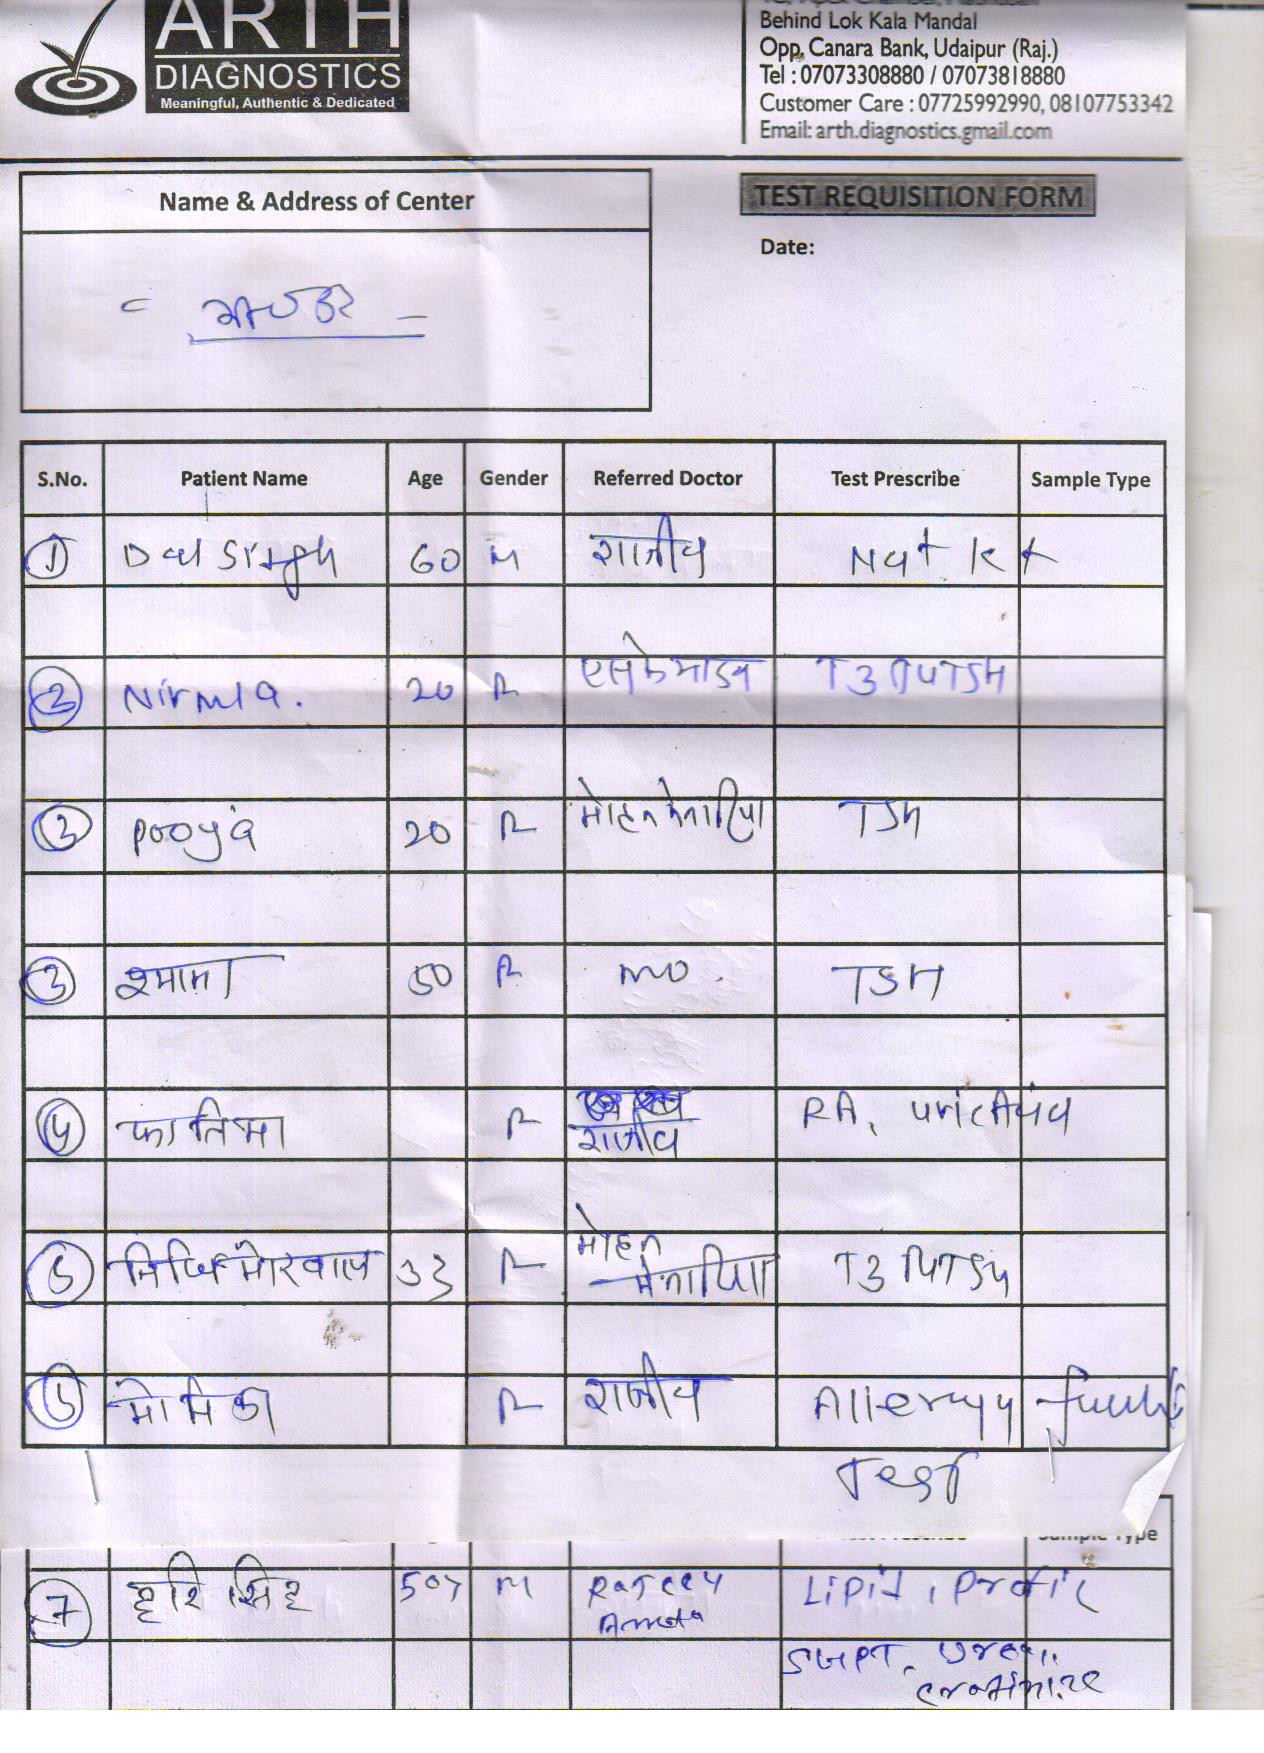 ARTH
DIAGNOSTICS
Meaningful, Authentic & Dedicated
Behind Lok Kala Mandal
Opp. Canara Bank, Udaipur (Raj.)
Tel : 07073308880 / 07073818880
Customer Care : 07725992990, 08107753342
Email: arth.diagnostics.gmail.com
Name & Address of Center
TEST REQUISITION FORM
Date:
S.No. Patient Name Age Gender Referred Doctor Test Prescribe Sample Type
1 Dal Singh 60 M राजीव Na+ K+
2 Nirmla. 20 F T3 T4 TSH
3 Pooja 20 F मोहन मेनारिया TSH
3 श्यामा 50 F mo. TSH
4 फातिमा F राजीव RA, uric Acid
5 33 F मोहन मेनारिया T3 T4 TSH
F राजीव Allergy
Test
Sample Type
7 हरि सिंह 50y M Rajeev Ameta Lipid, Profil
SGPT, Urea,
creatinine